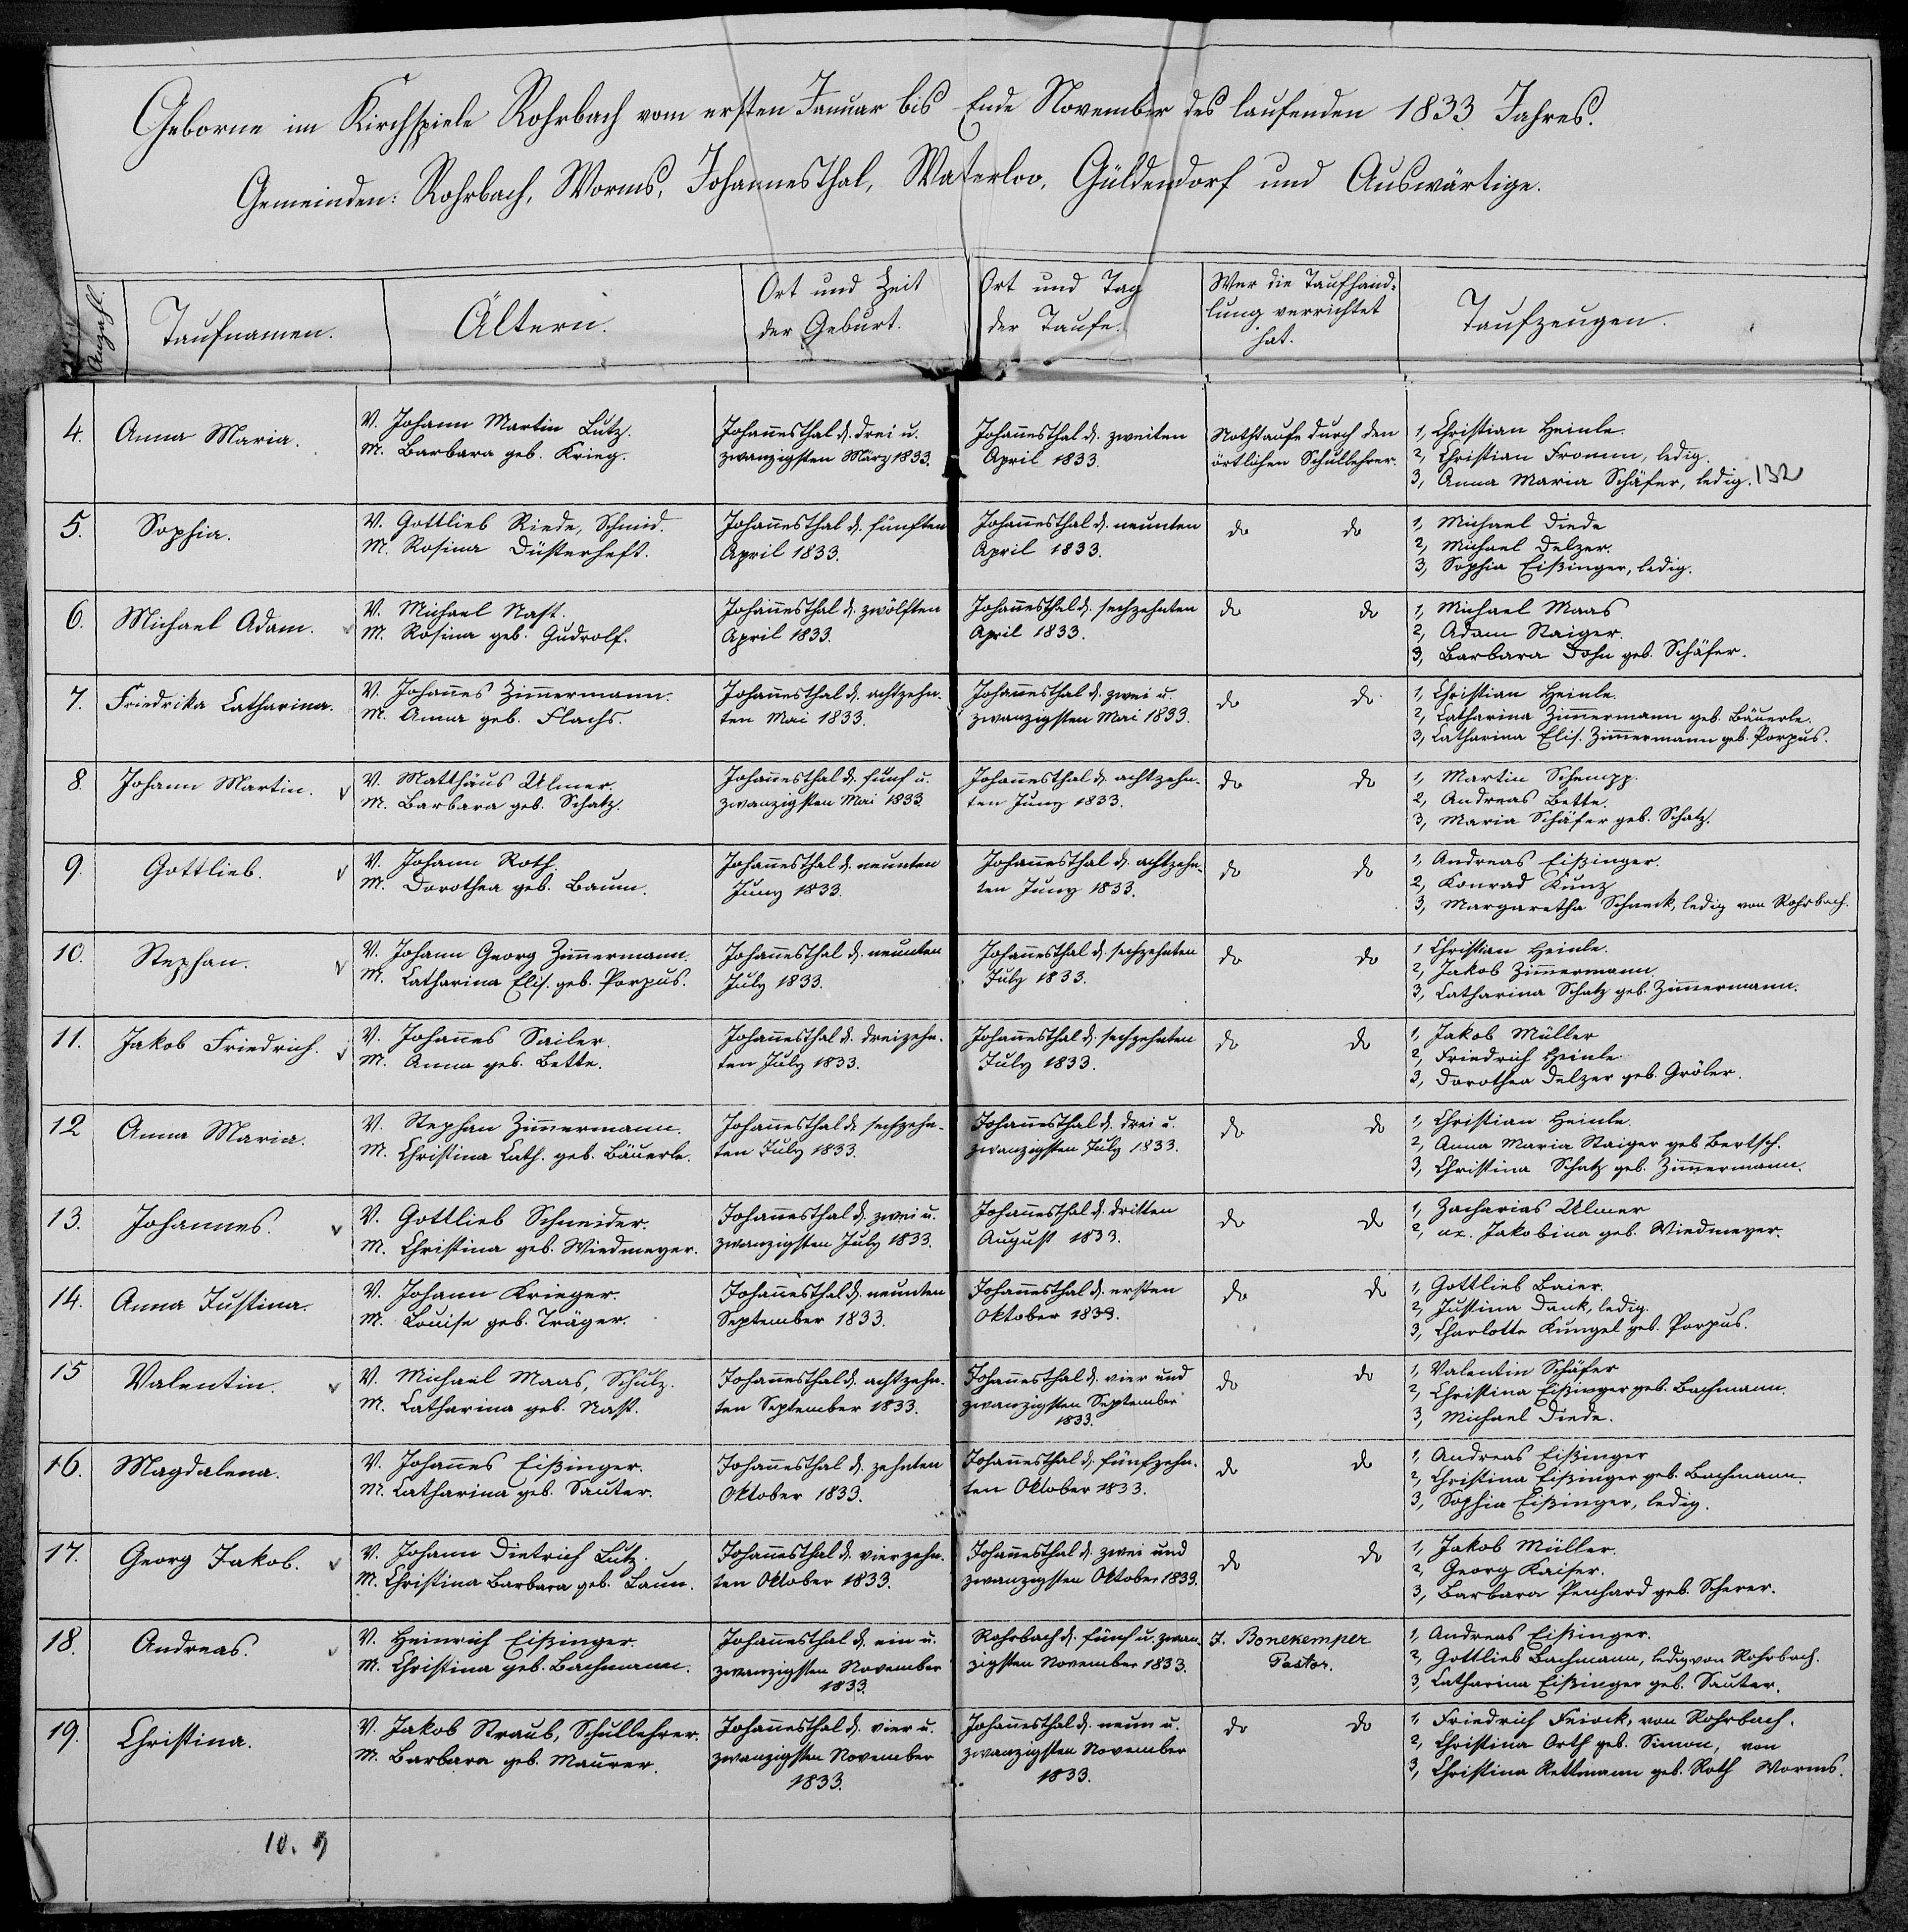 Geborne im Kirchspiele Rohrbach vom ersten Januar bis Ende November des laufenden 1833 Jahres.
Gemeinden: Rohrbach, Worms, Johannesthal, Waterloo, Güldendorf und Auswärtige.
Anzahl.
Taufnamen.
Ältern.
Ort und Zeit
der Geburt.
Ort und Tag
der Taufe.
Wer die Taufhand-
lung verrichtet
hat.
Taufzeugen.
4.
Anna Maria.
V. Johann Martin Lutz.
M. Barbara geb. Krieg.
Johannesthal d. drei u.
zwanzigsten März 1833.
Johannesthal d. zweiten
April 1833.
Nothtaufe durch den
örtlichen Schullehrer.
1, Christian Heinle.
2, Christian Fromm, ledig.
3, Anna Maria Schäfer, ledig. 132
5.
Sophia.
V. Gottlieb Riede, Schmid.
M. Rosina Düsterheft.
Johannesthal d. fünften
April 1833.
Johannesthal d. neunten
April 1833.
do do
1, Michael Diede
2, Michael Delzer.
3, Sophia Eißinger, ledig.
6.
Michael Adam.
V. Michael Nast.
M. Rosina geb. Gudrolf.
Johannesthal d. zwölften
April 1833.
Johannesthal d. sechzehnten
April 1833.
do do
1, Michael Maas
2, Adam Staiger.
3, Barbara Dohn geb. Schäfer.
7.
Friedrika Catharina.
V. Johannes Zimmermann.
M. Anna geb. Flachs.
Johannesthal d. achtzehn-
ten Mai 1833.
Johannesthal d. zwei u.
zwanzigsten Mai 1833.
do do
1, Christian Heinle.
2, Catharina Zimmermann geb. Bäuerle.
3, Catharina Elis. Zimmermann geb. Porpus.
8.
Johann Martin. v
V. Matthäus Ulmer.
M. Barbara geb. Schatz.
Johannesthal d. fünf u.
zwanzigsten Mai 1833
Johannesthal d. achtzehn-
ten Juny 1833.
do do
1, Martin Schempp.
2, Andreas Bette.
3, Maria Schäfer geb. Schatz.
9.
Gottlieb. v
V. Johann Roth.
M. Dorothea geb. Baum.
Johannesthal d. neunten
Juny 1833.
Johannesthal d. achtzehn-
ten Juny 1833.
do do
1, Andreas Eißinger.
2, Konrad Kunz
3, Margaretha Schneck, ledig von Rohrbach.
10.
Stephan. v
V. Johann Georg Zimmermann.
M. Catharina Elis. geb. Porpus.
Johannesthal d. neunten
July 1833.
Johannesthal d. sechzehnten
July 1833.
do do
1 Christian Heinle.
2, Jakob Zimmermann
3, Catharina Schatz geb. Zimmermann.
11.
Jakob Friedrich. v
V. Johannes Sailer.
M. Anna geb. Bette.
Johannesthal d. dreizehn-
ten July 1833.
Johannesthal d. sechzehnten
July 1833.
do do
1, Jakob Müller
2, Friedrich Heinle
3, Dorothea Delzer geb. Gröler.
12
Anna Maria.
V. Stephan Zimmermann.
M. Christina Cath. geb. Bäuerle.
Johannesthal d. sechzehn-
ten July 1833.
Johannesthal d. drei u.
zwanzigsten July 1833.
do do
1, Christian Heinle.
2, Anna Maria Staiger geb Bertsch.
3, Christina Schatz geb. Zimmermann.
13.
Johannes. v
V. Gottlieb Schneider.
M. Christina geb. Wiedmeyer.
Johannesthal d. zwei u.
zwanzigsten July 1833.
Johannesthal d. dritten
August 1833.
do do
1, Zacharias Ulmer
2, ux. Jakobina geb. Wiedmeyer.
14.
Anna Justina.
V. Johann Krieger.
M. Louise geb. Träger.
Johannesthal d. neunten
September 1833.
Johannesthal d. ersten
Oktober 1833.
do do
1, Gottlieb Baier.
2, Justina Dank, ledig.
3, Charlotte Kungel geb. Porpus.
15
Valentin. v
V. Michael Maas, Schulz.
M. Catharina geb. Nast.
Johannesthal d. achtzehn-
ten September 1833.
Johannesthal d. vier und
zwanzigsten September
1833.
do do
1, Valentin Schäfer
2, Christina Eißinger geb. Bachmann.
3, Michael Diede.
16.
Magdalena.
V. Johannes Eißinger.
M. Catharina geb. Sauter.
Johannesthal d. zehnten
Oktober 1833.
Johannesthal d. fünfzehn-
ten Oktober 1833.
do do
1, Andreas Eißinger
2, Christina Eißinger geb. Bachmann.
3, Sophia Eißinger, ledig.
17.
Georg Jakob. v
V. Johann Dietrich Lutz.
M. Christina Barbara geb. Baum.
Johannesthal d. vierzehn-
ten Oktober 1833.
Johannesthal d. zwei und
zwanzigsten Oktober 1833.
do do
1, Jakob Müller.
2, Georg Kaiser.
3, Barbara Penhard geb. Scherer.
18.
Andreas. v
V. Heinrich Eißinger.
M. Christina geb. Bachmann.
Johannesthal d. ein u.
zwanzigsten November
1833.
Rohrbach d. fünf u. zwan-
zigsten November 1833.
J. Bonekemper
Pastor.
1, Andreas Eißinger.
2, Gottlieb Bachmann, ledig von Rohrbach.
3, Catharina Eißinger geb. Sauter.
19.
Christina.
V. Jakob Straub, Schullehrer.
M. Barbara geb. Maurer.
Johannesthal d. vier u.
zwanzigsten November
1833.
Johannesthal d. neun u.
zwanzigsten November
1833.
do do
1, Friedrich Feiock, von Rohrbach.
2, Christina Orth geb. Simon, von
3, Christina Rettmann geb. Roth Worms.
10. 9